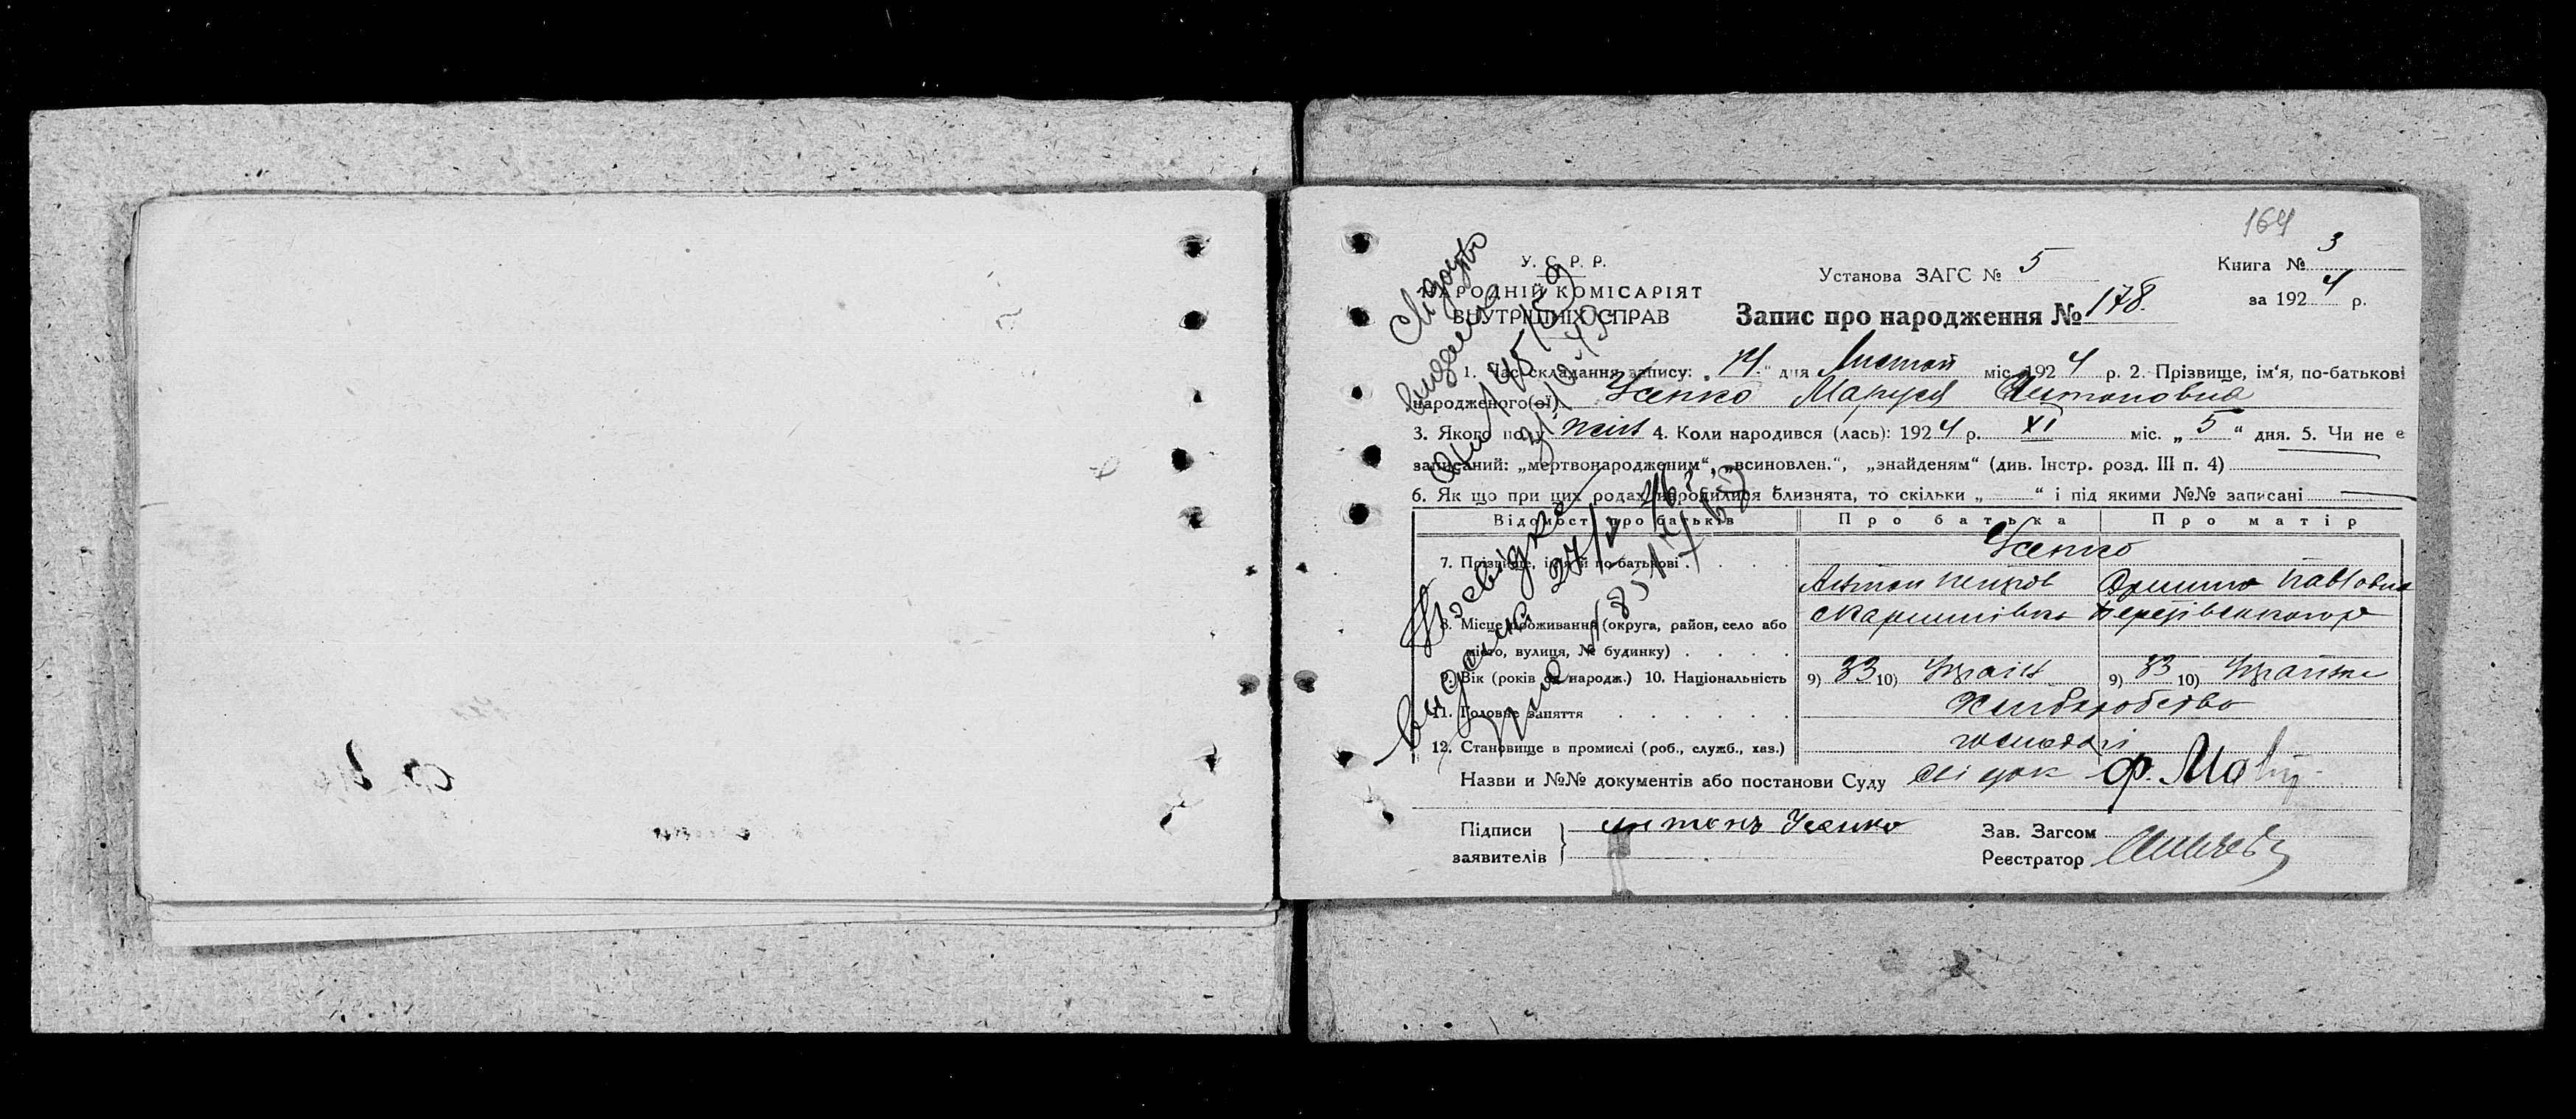 164
У. С. Р. Р.
НАРОДНІЙ КОМІСАРІЯТ
ВНУТРІШНІХ СПРАВ
Установа ЗАГС № 5
Книга № 3
за 1924 р.
Запис про народження № 178.
1. Час складання запису: „14“ дня Листоп міс. 1924 р. 2. Прізвище, ім‘я, по-батькові
народженого(ої) Усенко Маруся Антоновна
3. Якого полу жіноч 4. Коли народився (лась): 1924 р. XI міс. „5“ дня. 5. Чи не є
записаний: „мертвонародженим“, „всиновлен.“, „знайденям“ (див. Інстр. розд. III п. 4)
6. Як що при цих родах народилися близнята, то скільки „ “ і під якими №№ записані
Відомості про батьків Про батька Про матір
7. Прізвище, ім‘я й по-батькові . . . . Усенко
Антон Петров Павловна
8. Місце проживання (округа, район, село або
місто, вулиця, № будинку) . . . .
9. Вік (років од народж.) 10. Національність 9) 33 10) Украін 9) 33 10) Украінка
11. Головне заняття . . . . . . Хліборобство
12. Становище в промислі (роб., служб., хаз.) господарі
Назви и №№ документів або постанови Суду Свідок Ф.
Підписи
заявителів } Антонъ Усенко
Зав. Загсом
Реєстратор
Свідоцтво
видано
видано 27/V 46